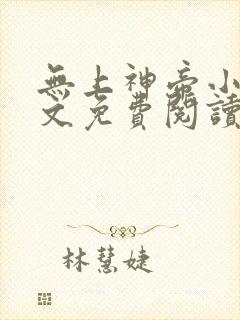 無上神帝小
文免費閱讀
林慧婕